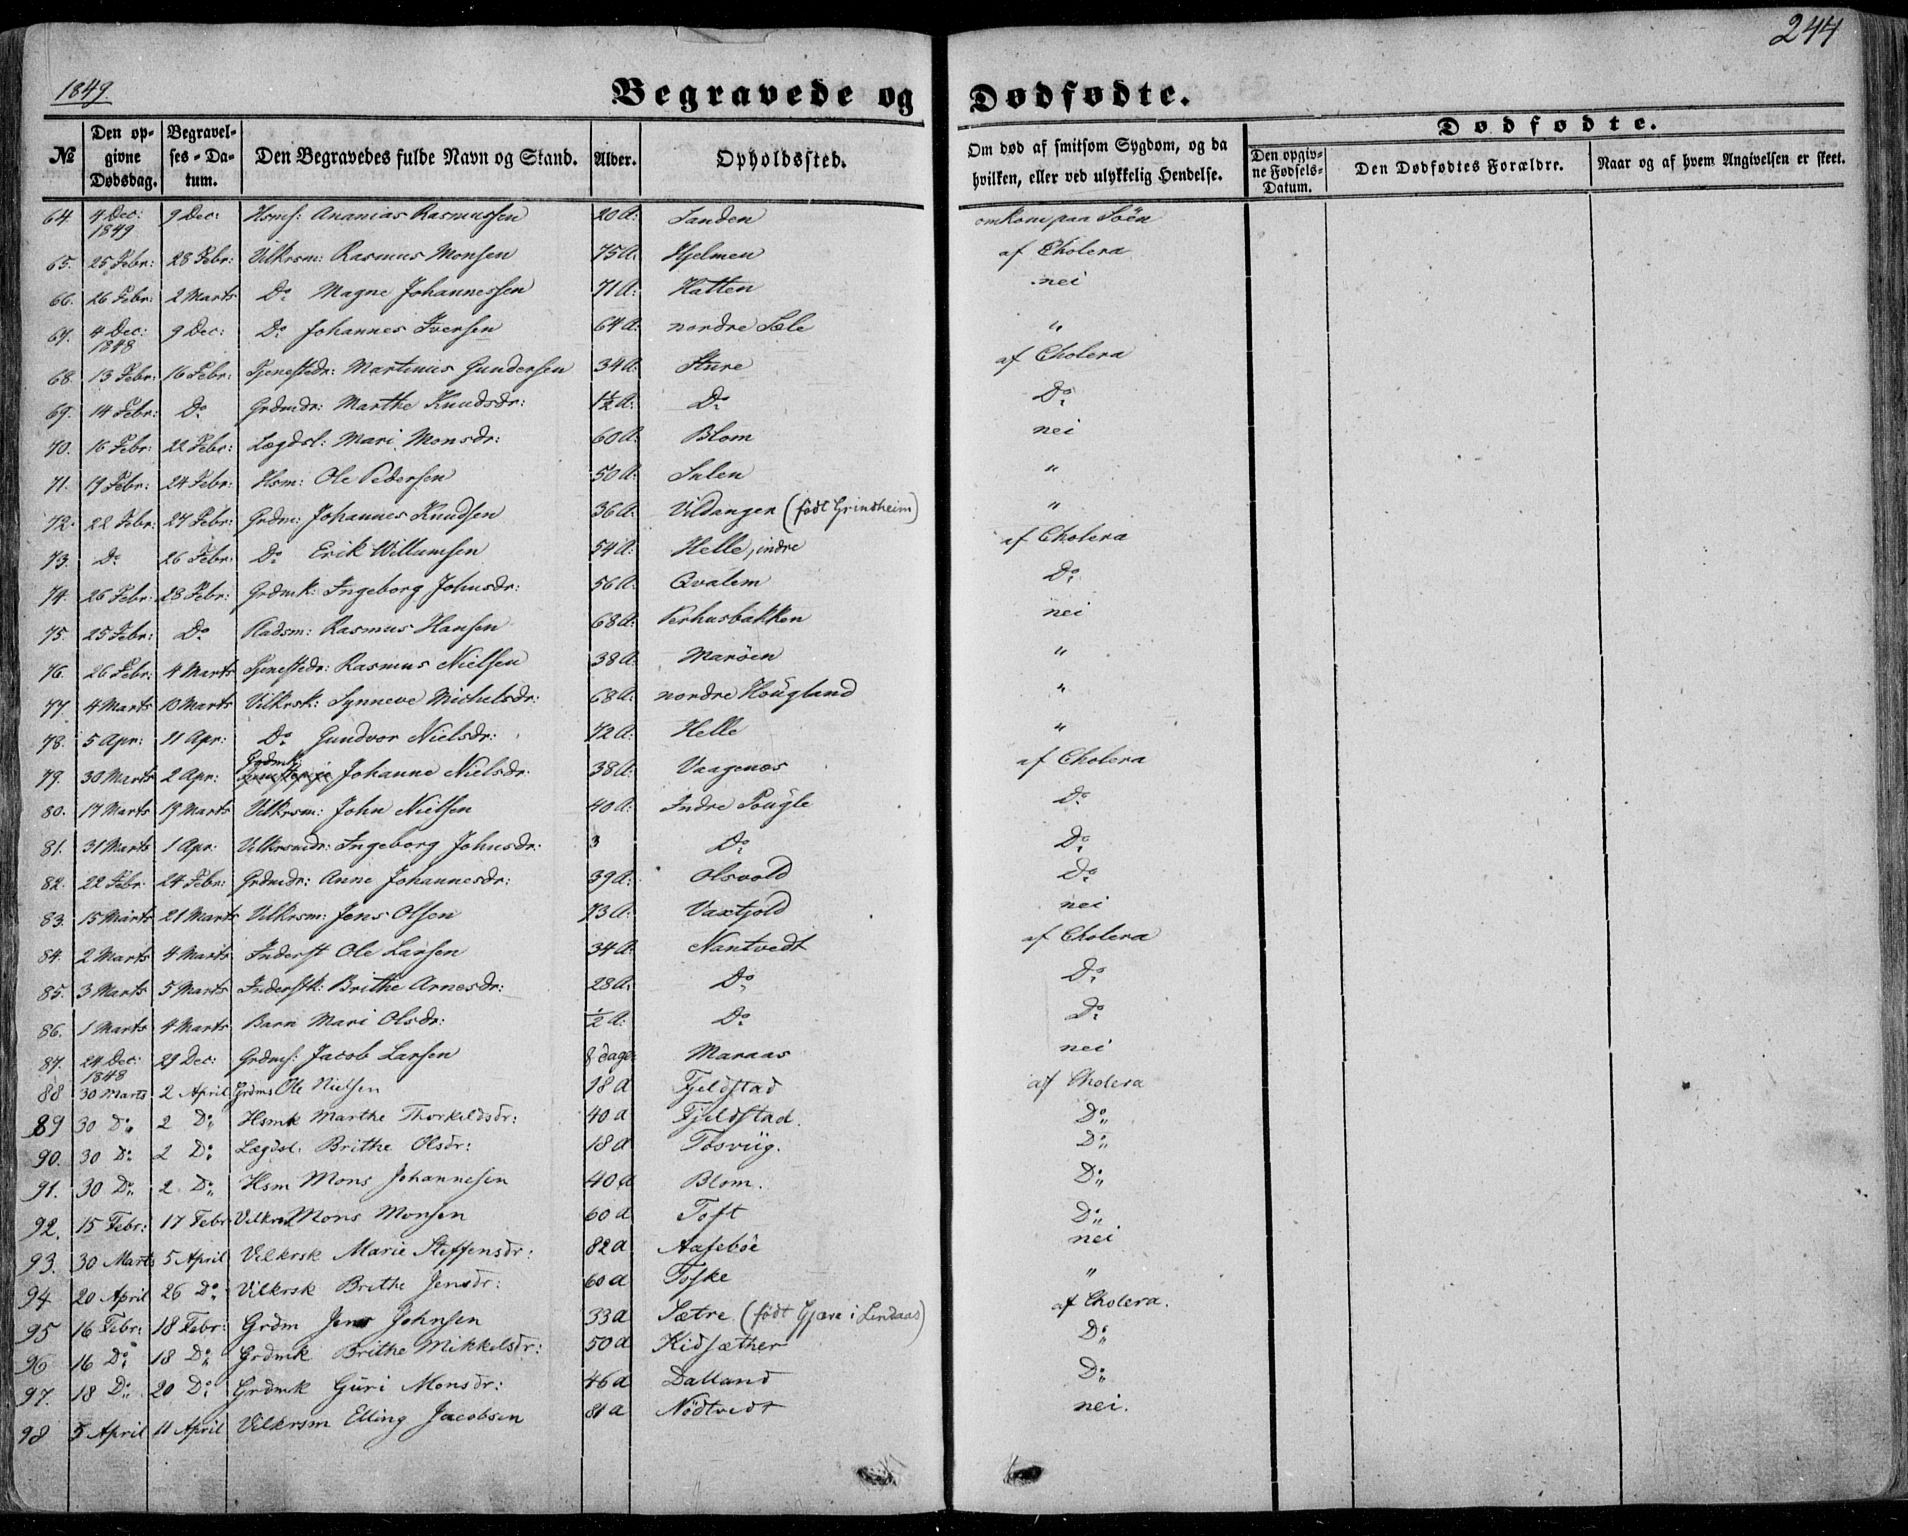 244
1849.
Begravede og Dødfødte.
№ | Den opgivne Dødsdag. | Begravelses-Datum. | Den Begravedes fulde Navn og Stand. | Alder. | Opholdssted. | Om død af smitsom Sygdom, og da hvilken, eller ved ulykkelig Hendelse. | Dødfødte. | Den opgivne Fødsels-Datum. | Den Dødfødtes Forældre. | Naar og af hvem Angivelsen er skeet.
64 | 4 Dec: 1849 | 9 Dec: | Hsms: Ananias Rasmussen | 20 A: | Sanden | omkom paa Söen
65. | 25 Febr: | 28 Febr: | Vilkrsm: Rasmus Monsen | 75 A: | Hjelmen | af Cholera
66. | 26 Febr: | 2 Marts | Do Magne Johannessen | 71 A: | Hatten | nei
67. | 4 Dec: 1848 | 9 Dec: | Do Johannes Iversen | 64 A: | nordre Sæle | "
68. | 13 Febr: | 16 Febr: | Tjenestedr: Martinus Gundersen | 34 A: | Sture | af Cholera
69. | 14 Febr: | Do | Grdmdr: Marthe Knudsdr: | 1½ A: | Do | Do
70. | 16 Febr: | 22 Febr: | Lægdsl: Mari Monsdr: | 60 A: | Blom | nei
71. | 19 Febr: | 24 Febr: | Hsm: Ole Pedersen | 50 A: | Sulen | "
72. | 22 Febr: | 27 Febr: | Grdm: Johannes Knudsen | 36 A: | Vildangen (födt Grindheim) | "
73. | Do | 26 Febr: | Do Erik Willumsen | 54 A: | Helle, indre | af Cholera
74. | 26 Febr: | 28 Febr: | Grdmk: Ingeborg Johnsdr: | 56 A: | Qvalem | Do
75. | 25 Febr: | Do | Radsm: Rasmus Hansen | 68 A: | Kerhusbakken | nei
76. | 26 Febr: | 4 Marts | Tjenestedr: Rasmus Nielsen | 38 A: | Maröen | "
77. | 4 Marts | 10 Marts | Vilkrsk: Synneve Michelsdr: | 68 A: | nordre Hougland | "
78. | 5 Apr: | 11 Apr: | Do Gundvor Nielsdr: | 72 A: | Helle | "
79. | 30 Marts | 2 Apr: | Grdmk: Johanne Nielsdr: | 38 A: | Vaagenes | af Cholera
80. | 17 Marts | 19 Marts | Vilkrsm: John Nielsen | 40 A: | Indre Pougle | Do
81. | 31 Marts | 1 Apr: | Vilkrsmdr: Ingeborg Johnsdr: | 3 | Do | Do
82. | 22 Febr. | 24 Febr: | Grdmdr: Anne Johannesdr: | 39 A: | Olsvold | Do
83. | 15 Marts | 21 Marts | Vilkrsm: Jens Olsen | 73 A: | Vaxtjold | nei
84. | 2 Marts | 4 Marts | Inderst Ole Larsen | 34 A: | Nantvedt | af Cholera
85. | 3 Marts | 5 Marts | Inderstk: Brithe Arnesdr: | 28 A: | Do | Do
86. | 1 Marts | 4 Marts | Barn Mari Olsdr: | ½ A: | Do | Do
87. | 24 Dec: 1848 | 29 Dec: | Grdms: Jacob Larsen | 8 dage | Maraas | nei
88 | 30 Marts | 2 April | Grdms Ole Nielsen | 18 A | Fjeldstad | af Cholera
89 | 30 Do | 2 Do | Hsmk Marthe Thorkildsdr: | 40 A | Fjeldstad. | Do
90. | 30 Do | 2 Do | Lægdsl. Brithe Olsdr: | 18 A | Tosviig. | Do
91. | 30 Do | 2 Do | Hsm Mons Johannesen | 40 A | Blom. | Do
92. | 15 Febr: | 17 Febr | Vilkrsm Mons Monsen | 60 A | Toft | Do
93. | 30 Marts | 5 April | Vilkrsk Marie Steffensdr: | 82 A | Aaseböe | nei
94 | 20 April | 26 Do | Vilkrsk Brithe Jensdr: | 60 A | Toske | "
95 | 16 Febr: | 18 Febr: | Grdm Jens Johnsen | 33 A | Sætre (födt Gjære i Lindaas) | af Cholera.
96 | 16 Do | 18 Do | Grdmk Brithe Mikkelsdr: | 50 A | Kidsæther | Do
97. | 18 Do | 20 Do | Grdmk Guri Monsdr: | 46 A | Dalland | Do
98 | 5 April | 11 April | Vilkrsm Elling Jacobsen | 81 A | Nödtvedt | nei.